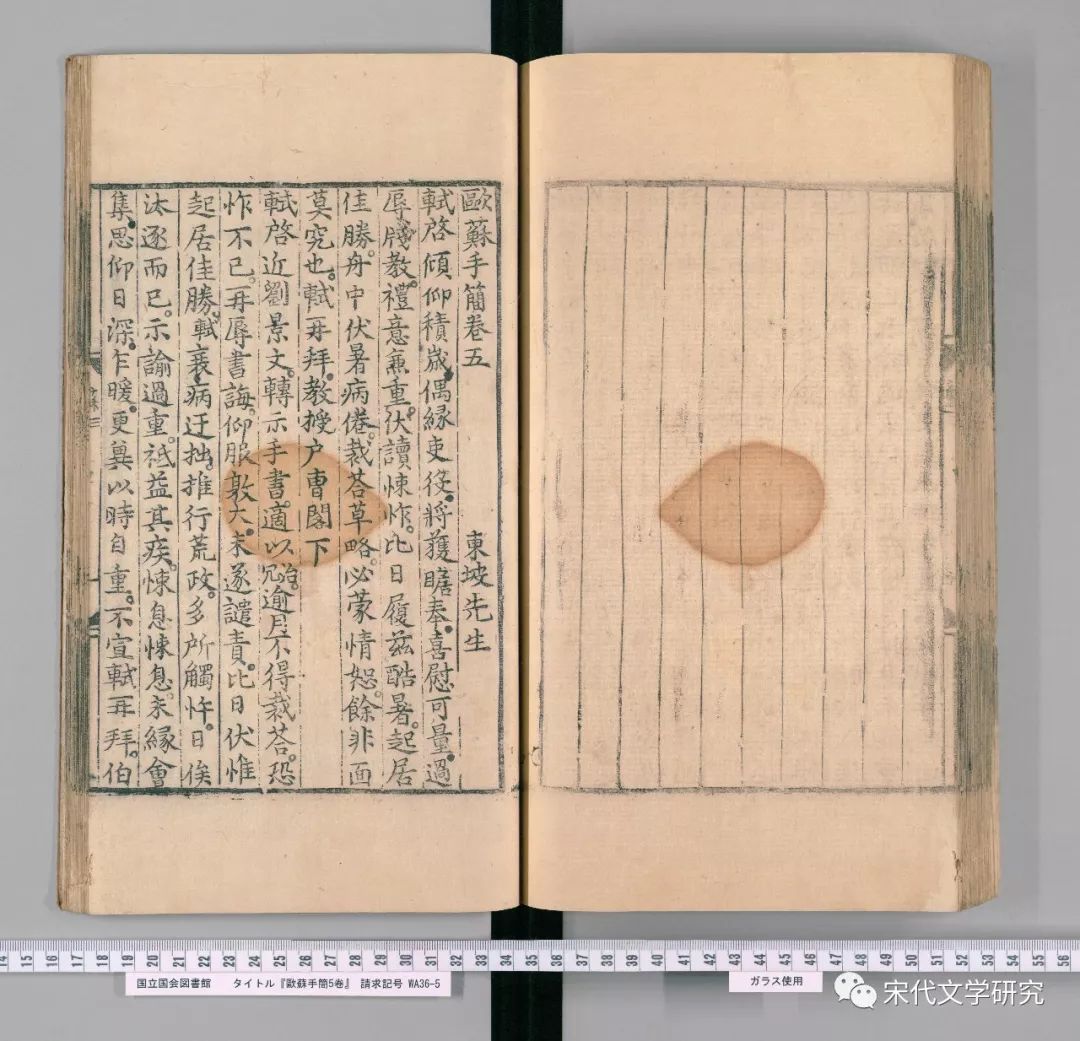 歐蘇手簡卷五 東坡先生
軾啓傾仰積歲偶緣吏役將獲瞻奉喜慰可量過
辱牋教禮意兼重伏讀悚怍比日履茲酷暑起居
佳勝舟中伏暑病倦裁荅草略必蒙情恕餘非面
莫究也軾再拜教授户曹閣下
軾啓近劉景文轉示手書適以冗治逾月不得裁荅恐
怍不已再辱書誨仰服敦大未遂譴責比日伏惟
起居佳勝軾衰病迂拙推行荒政多所觸忤日俟
汰逐而已示諭過重祗益其疾悚息悚息未緣會
集思仰日深乍暖更冀以時自重不宣軾再拜伯
国立国会図書館 タイトル『歐蘇手簡5巻』 請求記号 WA36-5
ガラス使用
14 15 16 17 18 19 20 21 22 23 24 25 26 27 28 29 30 31 32 33 34 35 36 37 38 39 40 41 42 43 44 45 46 47 48 49 50 51 52 53 54 55 56
宋代文学研究